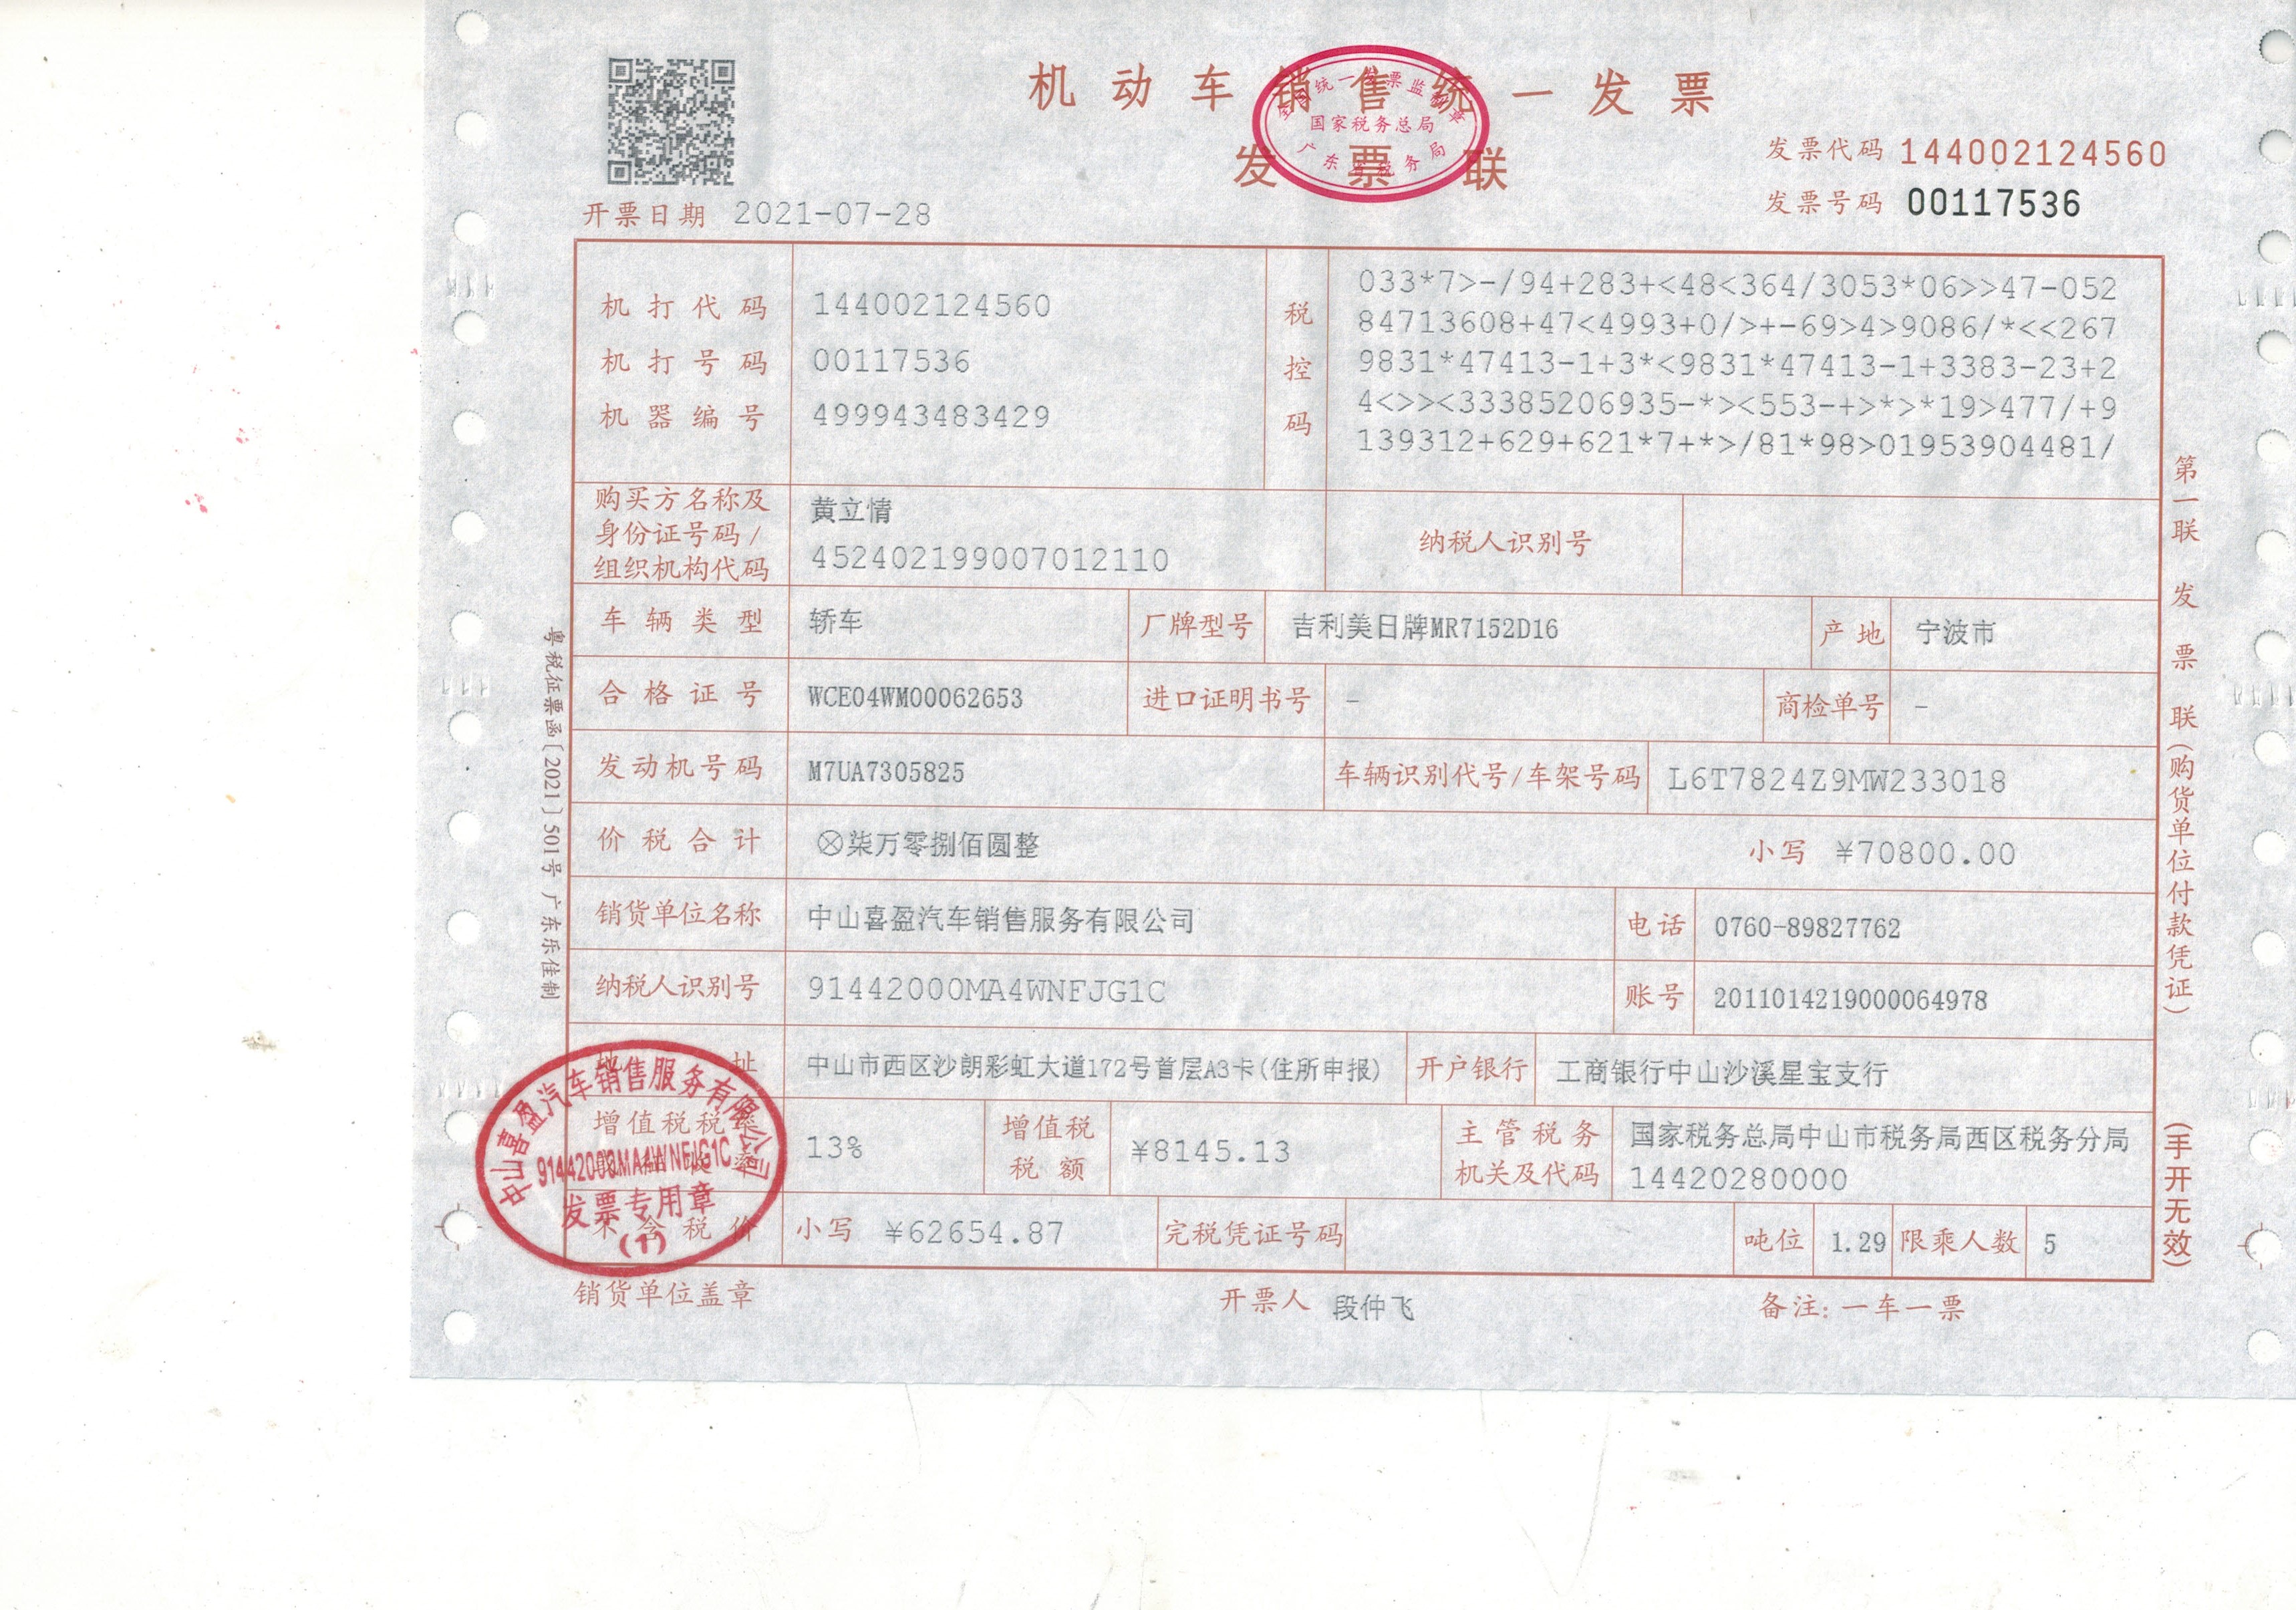 机动车销售统一发票
发票联
全国统一发票监制章
国家税务总局
广东省税务局
发票代码 144002124560
发票号码 00117536
开票日期 2021-07-28
机打代码 144002124560
机打号码 00117536
机器编号 499943483429
税控码
033*7>-/94+283+<48<364/3053*06>>47-052
84713608+47<4993+0/>+-69>4>9086/*<<267
9831*47413-1+3*<9831*47413-1+3383-23+2
4<>><33385206935-*><553-+>*>*19>477/+9
139312+629+621*7+*>/81*98>01953904481/
购买方名称及身份证号码/组织机构代码
黄立情
452402199007012110
纳税人识别号
车辆类型 轿车 厂牌型号 吉利美日牌MR7152D16 产地 宁波市
合格证号 WCE04WM00062653 进口证明书号 - 商检单号 -
发动机号码 M7UA7305825 车辆识别代号/车架号码 L6T7824Z9MW233018
价税合计 ⊗柒万零捌佰圆整 小写 ¥70800.00
销货单位名称 中山喜盈汽车销售服务有限公司 电话 0760-89827762
纳税人识别号 91442000MA4WNFJG1C 账号 2011014219000064978
址 中山市西区沙朗彩虹大道172号首层A3卡(住所申报) 开户银行 工商银行中山沙溪星宝支行
增值税税 13% 增值税税额 ¥8145.13 主管税务机关及代码 国家税务总局中山市税务局西区税务分局
14420280000
不含税价 小写 ¥62654.87 完税凭证号码 吨位 1.29 限乘人数 5
中山喜盈汽车销售服务有限公司
91442000MA4WNFJG1C
发票专用章
(1)
销货单位盖章 开票人 段仲飞 备注:一车一票
粤税征票函〔2021〕501号 广东乐佳制
第一联 发票联(购货单位付款凭证)
(手开无效)